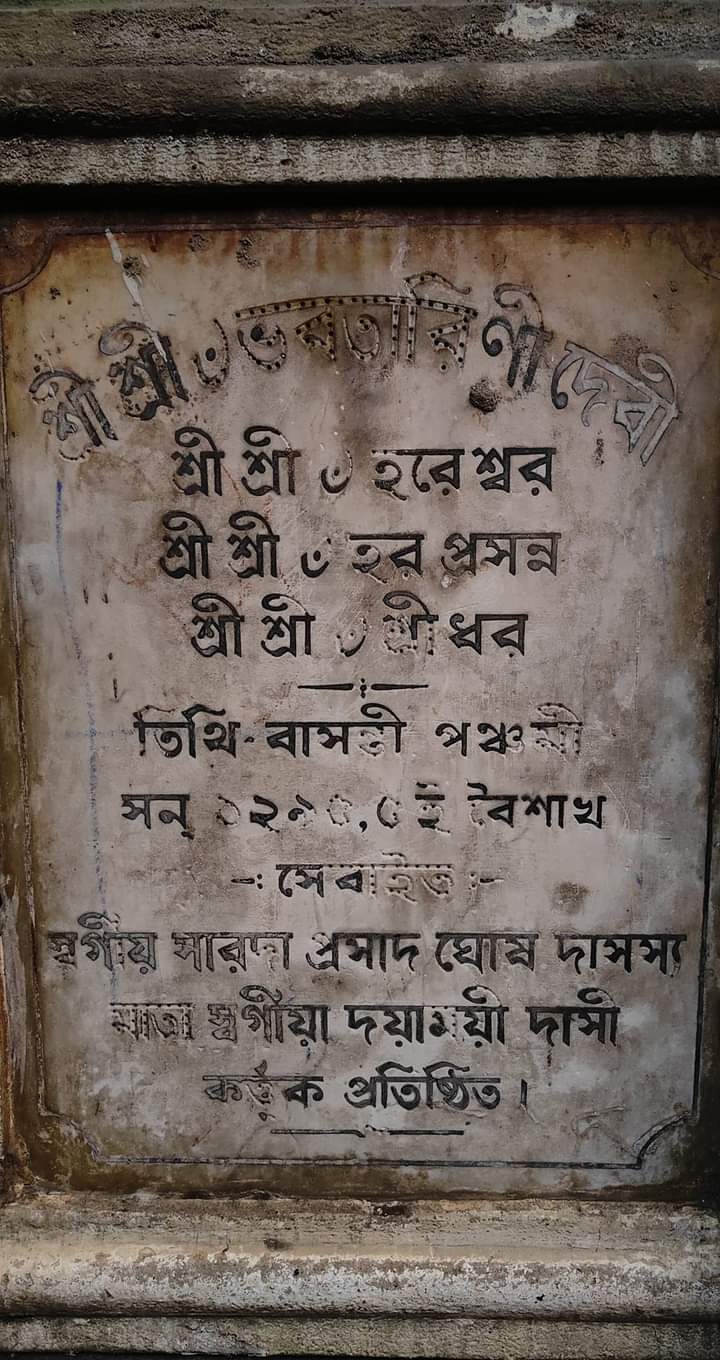 শ্রী শ্রী ঁভবতারিণী দেবী
শ্রী শ্রী ঁ হরেশ্বর
শ্রী শ্রী ঁ হর প্রসন্ন
শ্রী শ্রী ঁ শ্রীধর
তিথি-বাসন্তী পঞ্চমী
সন্ ৫ই বৈশাখ
-: সেবাইত :-
স্বর্গীয় সারদা প্রসাদ ঘোষ দাসস্য
মাতা স্বর্গীয়া দয়াময়ী দাসী
কর্ত্তৃক প্রতিষ্ঠিত।